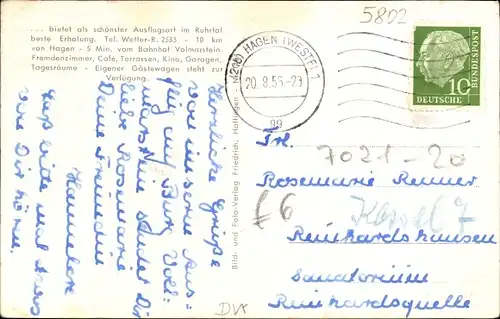 ... bietet als schönster Ausflugsort im Ruhrtal
beste Erholung. Tel. Wetter-R. 2535 - 10 km
von Hagen - 5 Min. vom Bahnhof Volmarstein.
Fremdenzimmer, Café, Terrassen, Kino, Garagen,
Tagesräume - Eigener Gästewagen steht zur
Verfügung.
Herzliche Grüße
von unserm Aus-
flug auf Burg Voll-
marstein sendet Dir
liebe Rosemarie
Deine Freundin
Hannelore
Laß bitte mal etwas
von Dir hören.
Bild- und Foto-Verlag Friedrich, Hattingen
5802
(22b) HAGEN (WESTF) 1
20.8.55-23
gg
DEUTSCHE
BUNDESPOST
10
Frl.
7021-20
Rosemarie Renner
£6
Kassel 7
Reinhardshausen
Sanatorium
Reinhardsquelle
DVK